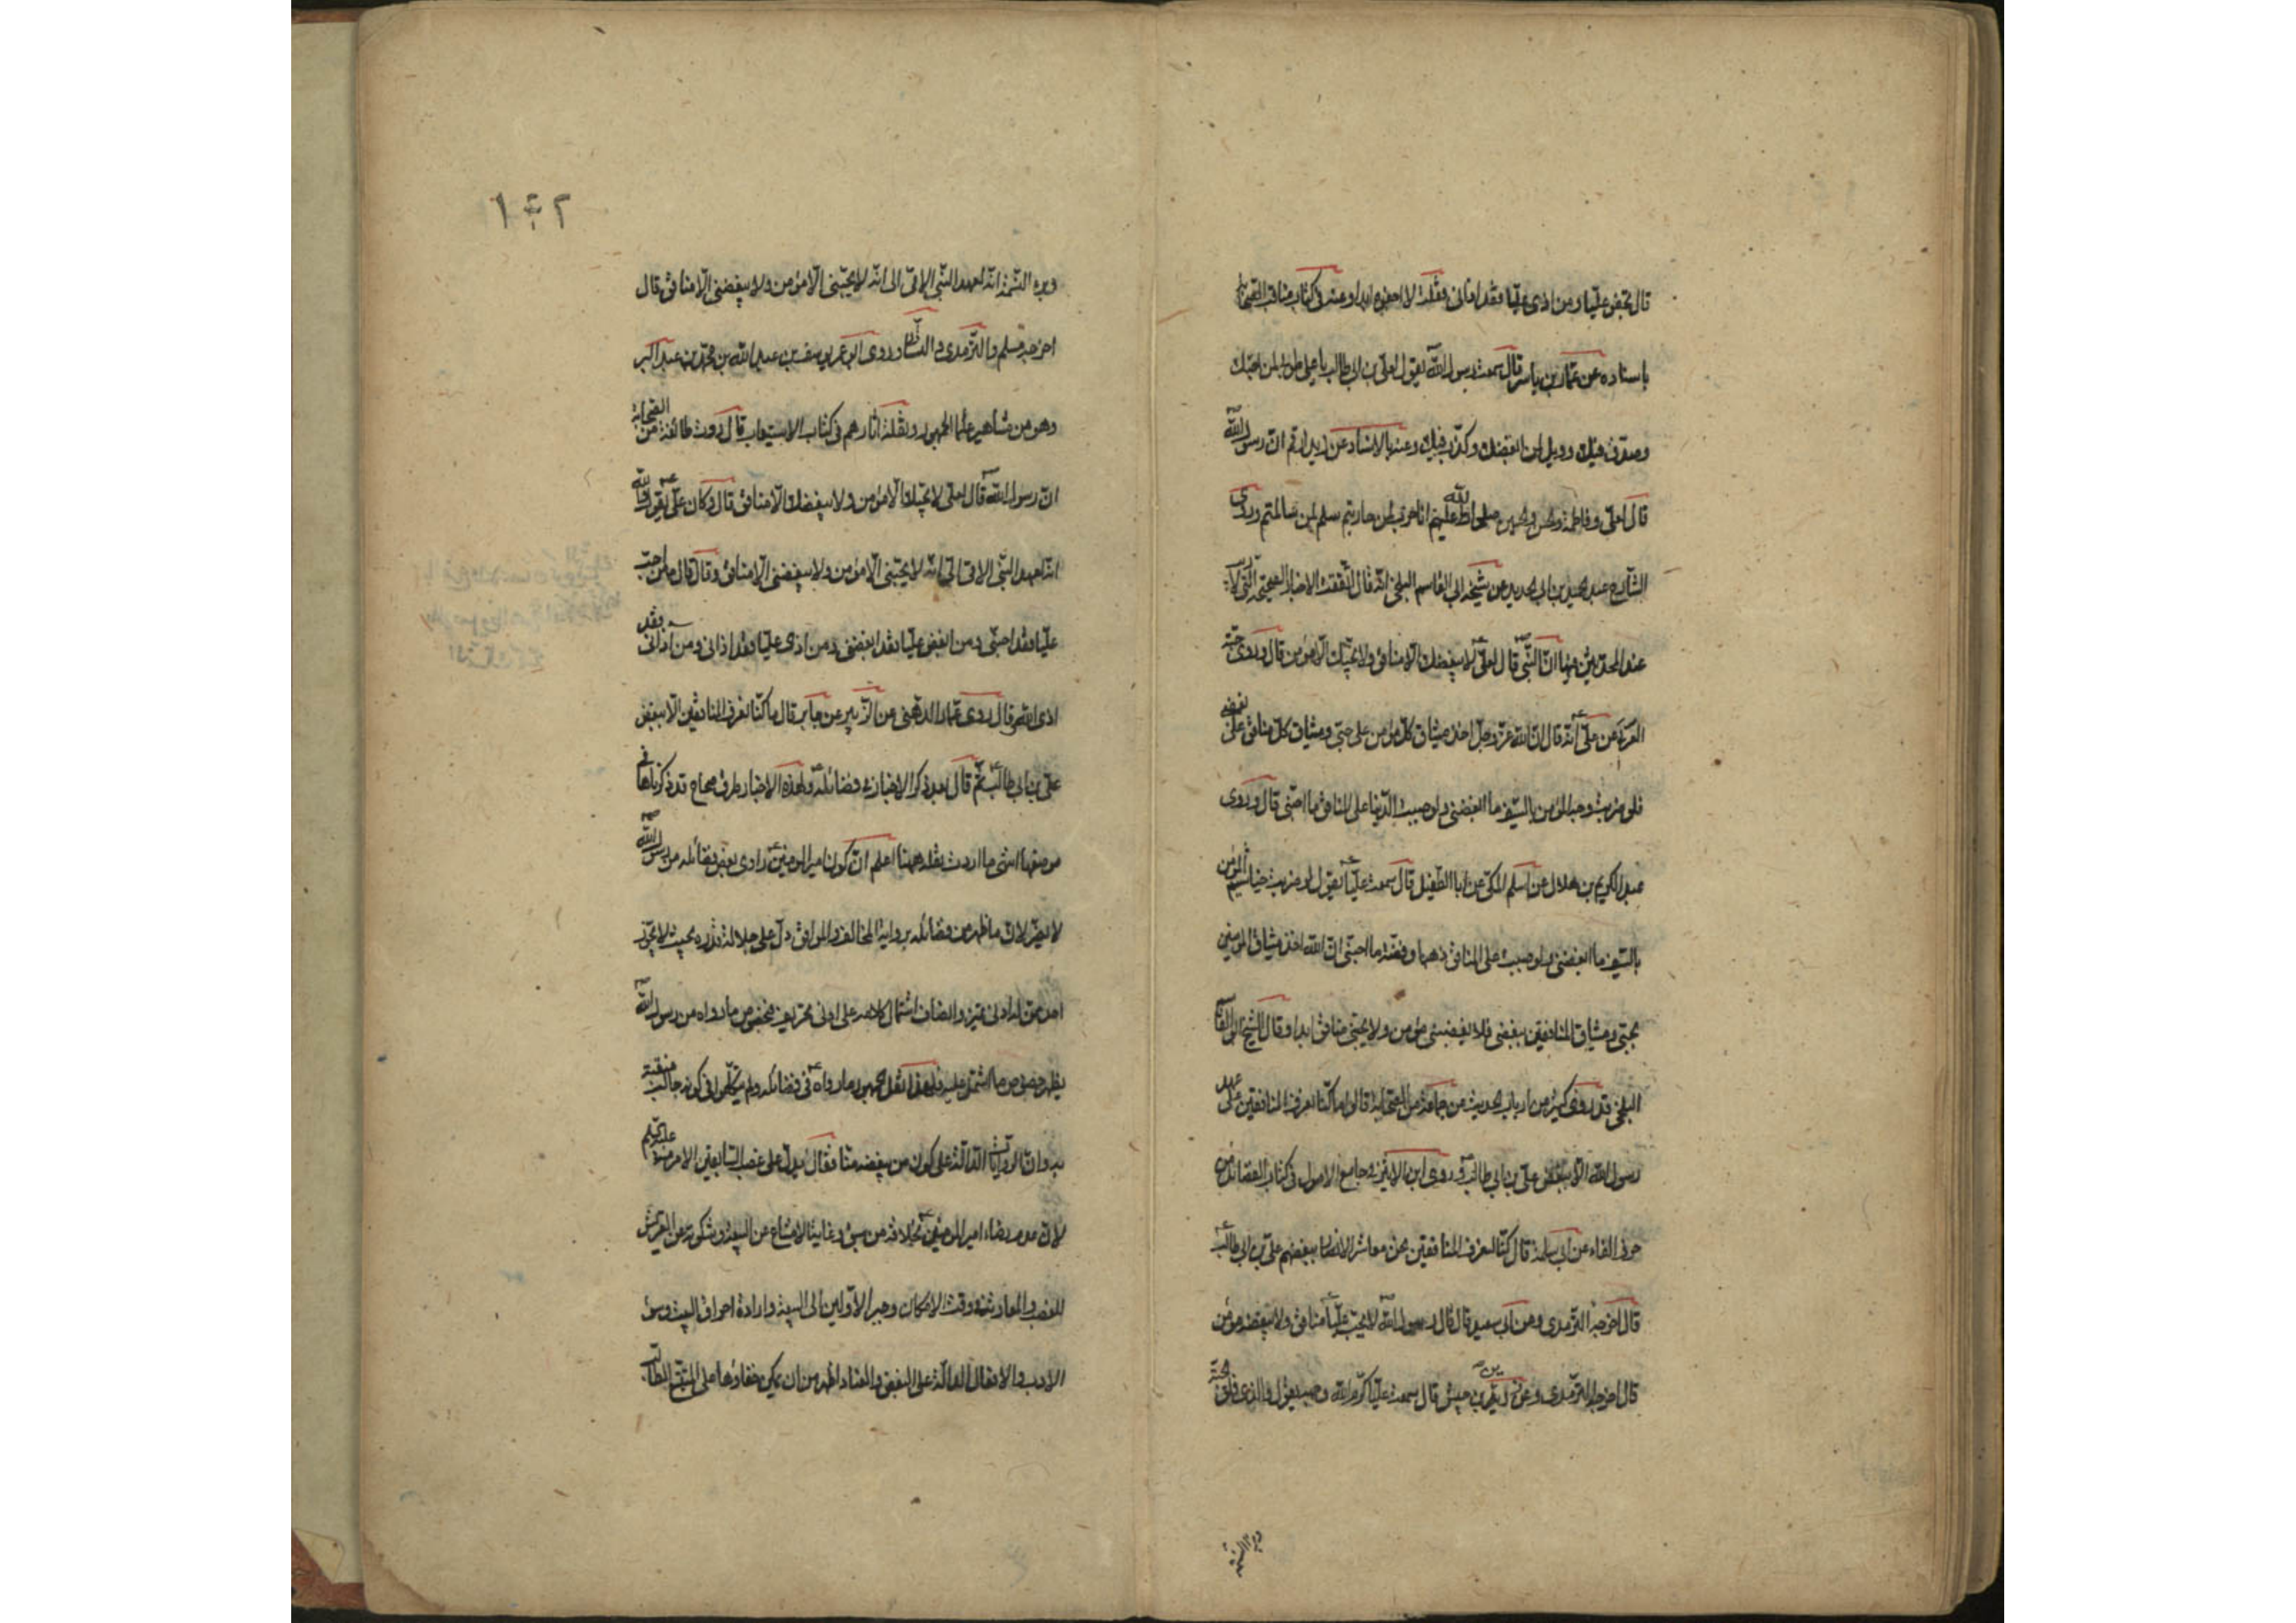 قال يبغض عليا ومن اذى عليا فقد اذانى فقلت لا ابغضه ابدا وعنه فى كتاب مناقب الصحابة
باسناده عن عمار بن ياسر قال سمعت رسول الله يقول لعلى بن ابى طالب يا على طوبى لمن احبك
وصدق فيك وويل لمن ابغضك وكذب فيك وعنه بالاسناد عن زيد بن ارقم ان رسول الله
قال لعلى وفاطمة والحسن والحسين صلى الله عليهم انا حرب لمن حاربتم سلم لمن سالمتم وروى
الشارح عبد الحميد بن ابى الحديد عن شيخه ابى القاسم البلخى انه قال اتفقت الاخبار الصحيحة التى لا
عند المحدثين فيها ان النبى قال لعلى لا يبغضك الا منافق ولا يحبك الا مؤمن قال وروى حبة
العرنى عن على انه قال ان الله عز وجل اخذ ميثاق كل مؤمن على حبى وميثاق كل منافق على بغضى
فلو ضربت وجه المؤمن بالسيف ما ابغضنى ولو صببت الدنيا على المنافق ما احبنى قال وروى
عبد الكريم بن هلال عن اسلم المكى عن ابا الطفيل قال سمعت عليا يقول لو ضربت خياشيم المؤمن
بالسيف ما ابغضنى ولو صببت على المنافق ذهبا وفضة ما احبنى ان الله اخذ ميثاق المؤمنين
بحبى وميثاق المنافقين ببغضى فلا يبغضنى مؤمن ولا يحبنى منافق ابدا وقال الشيخ ابو القاسم
البلخى قد روى كثير من ارباب الحديث عن جماعة من الصحابة قالوا ما كنا نعرف المنافقين على عهد
رسول الله الا ببغض على بن ابى طالب وروى ابن الاثير فى جامع الاصول فى كتاب الفضائل من
حرف الفاء عن ابى سلمة قال كنا لنعرف المنافقين نحن معاشر الانصار ببغضهم على بن ابى طالب
قال اخرجه الترمذى وعن ابى سعيد قال قال رسول الله لا يحب عليا منافق ولا يبغضه مؤمن
قال اخرجه الترمذى وعن زر بن حبيش قال سمعت عليا كرم الله وجهه يقول والذى فلق الحبة
وبرء النسمة
١٤٢
وبرء النسمة انه لعهد النبى الامى الى انه لا يحبنى الا مؤمن ولا يبغضنى الا منافق قال
اخرجه مسلم والترمذى والنسائى وروى ابو عمر يوسف بن عبد الله بن محمد بن عبد البر
وهو من مشاهير علماء الجمهور ونقلة آثارهم فى كتاب الاستيعاب قال روت طائفة من الصحابة
ان رسول الله قال لعلى لا يحبك الا مؤمن ولا يبغضك الا منافق قال وكان على يقول والله
انه لعهد النبى الامى الى انه لا يحبنى الا مؤمن ولا يبغضنى الا منافق وقال قال من احب
عليا فقد احبنى ومن ابغض عليا فقد ابغضنى ومن اذى عليا فقد اذانى ومن آذانى فقد
اذى الله قال روى عمار الدهنى عن الزبير عن جابر قال ما كنا نعرف المنافقين الا ببغض
على بن ابى طالب ثم قال بعد ذكر الاخبار فى فضائله ولهذه الاخبار طرق صحاح قد ذكرناها فى
موضعها انتهى ما اردت نقله ههنا اعلم ان كون امير المومنين راوى بعض فضائله من رسول الله
لا يضر لان ما ظهر من فضائله برواية المخالف والموافق دل على جلالة قدره بحيث لا يجوز
احد ممن له ادنى تميز وانصاف اشتمال كلامه على ادنى تحريف فضلا من ما رواه من رسول الله
يظهر خصوص ما اشتمل عليه فلهذا نقل الجمهور ما رواه فى فضائله ولم يتكلموا فى كونه جالب منفعة
به وان الروايات الدالة على كون من يبغضه منافقا يدل على غصب السابقين الامر منه عليه السلم
لان عدم رضاء امير المومنين بخلافة من سبق وغاية الامتناع عن البيعة وشكوته من القريش
للغصب والمعاونة وقت الامكان وجبر الاولين الى البيعة وارادة احراق البيت وسوء
الادب والافعال الدالة على البغض والعناد اظهر من ان يمكن خفاؤها على المتتبع الطالب